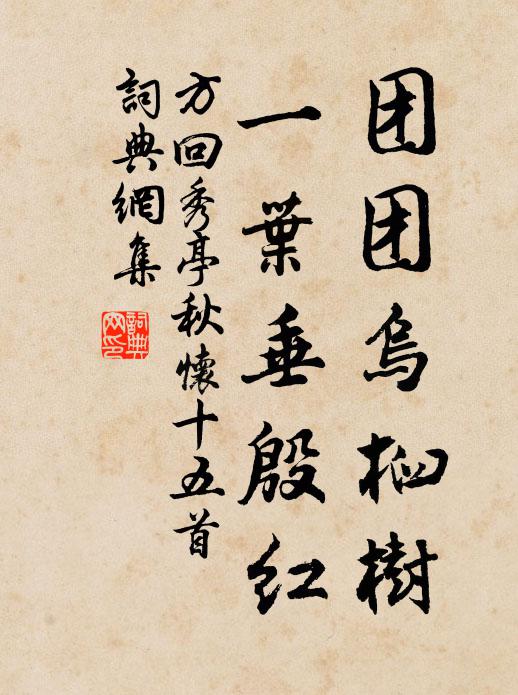 团团乌桕樹
一葉垂殷红
方回秀亭秋懷十五首
詞典網集
詞典网印